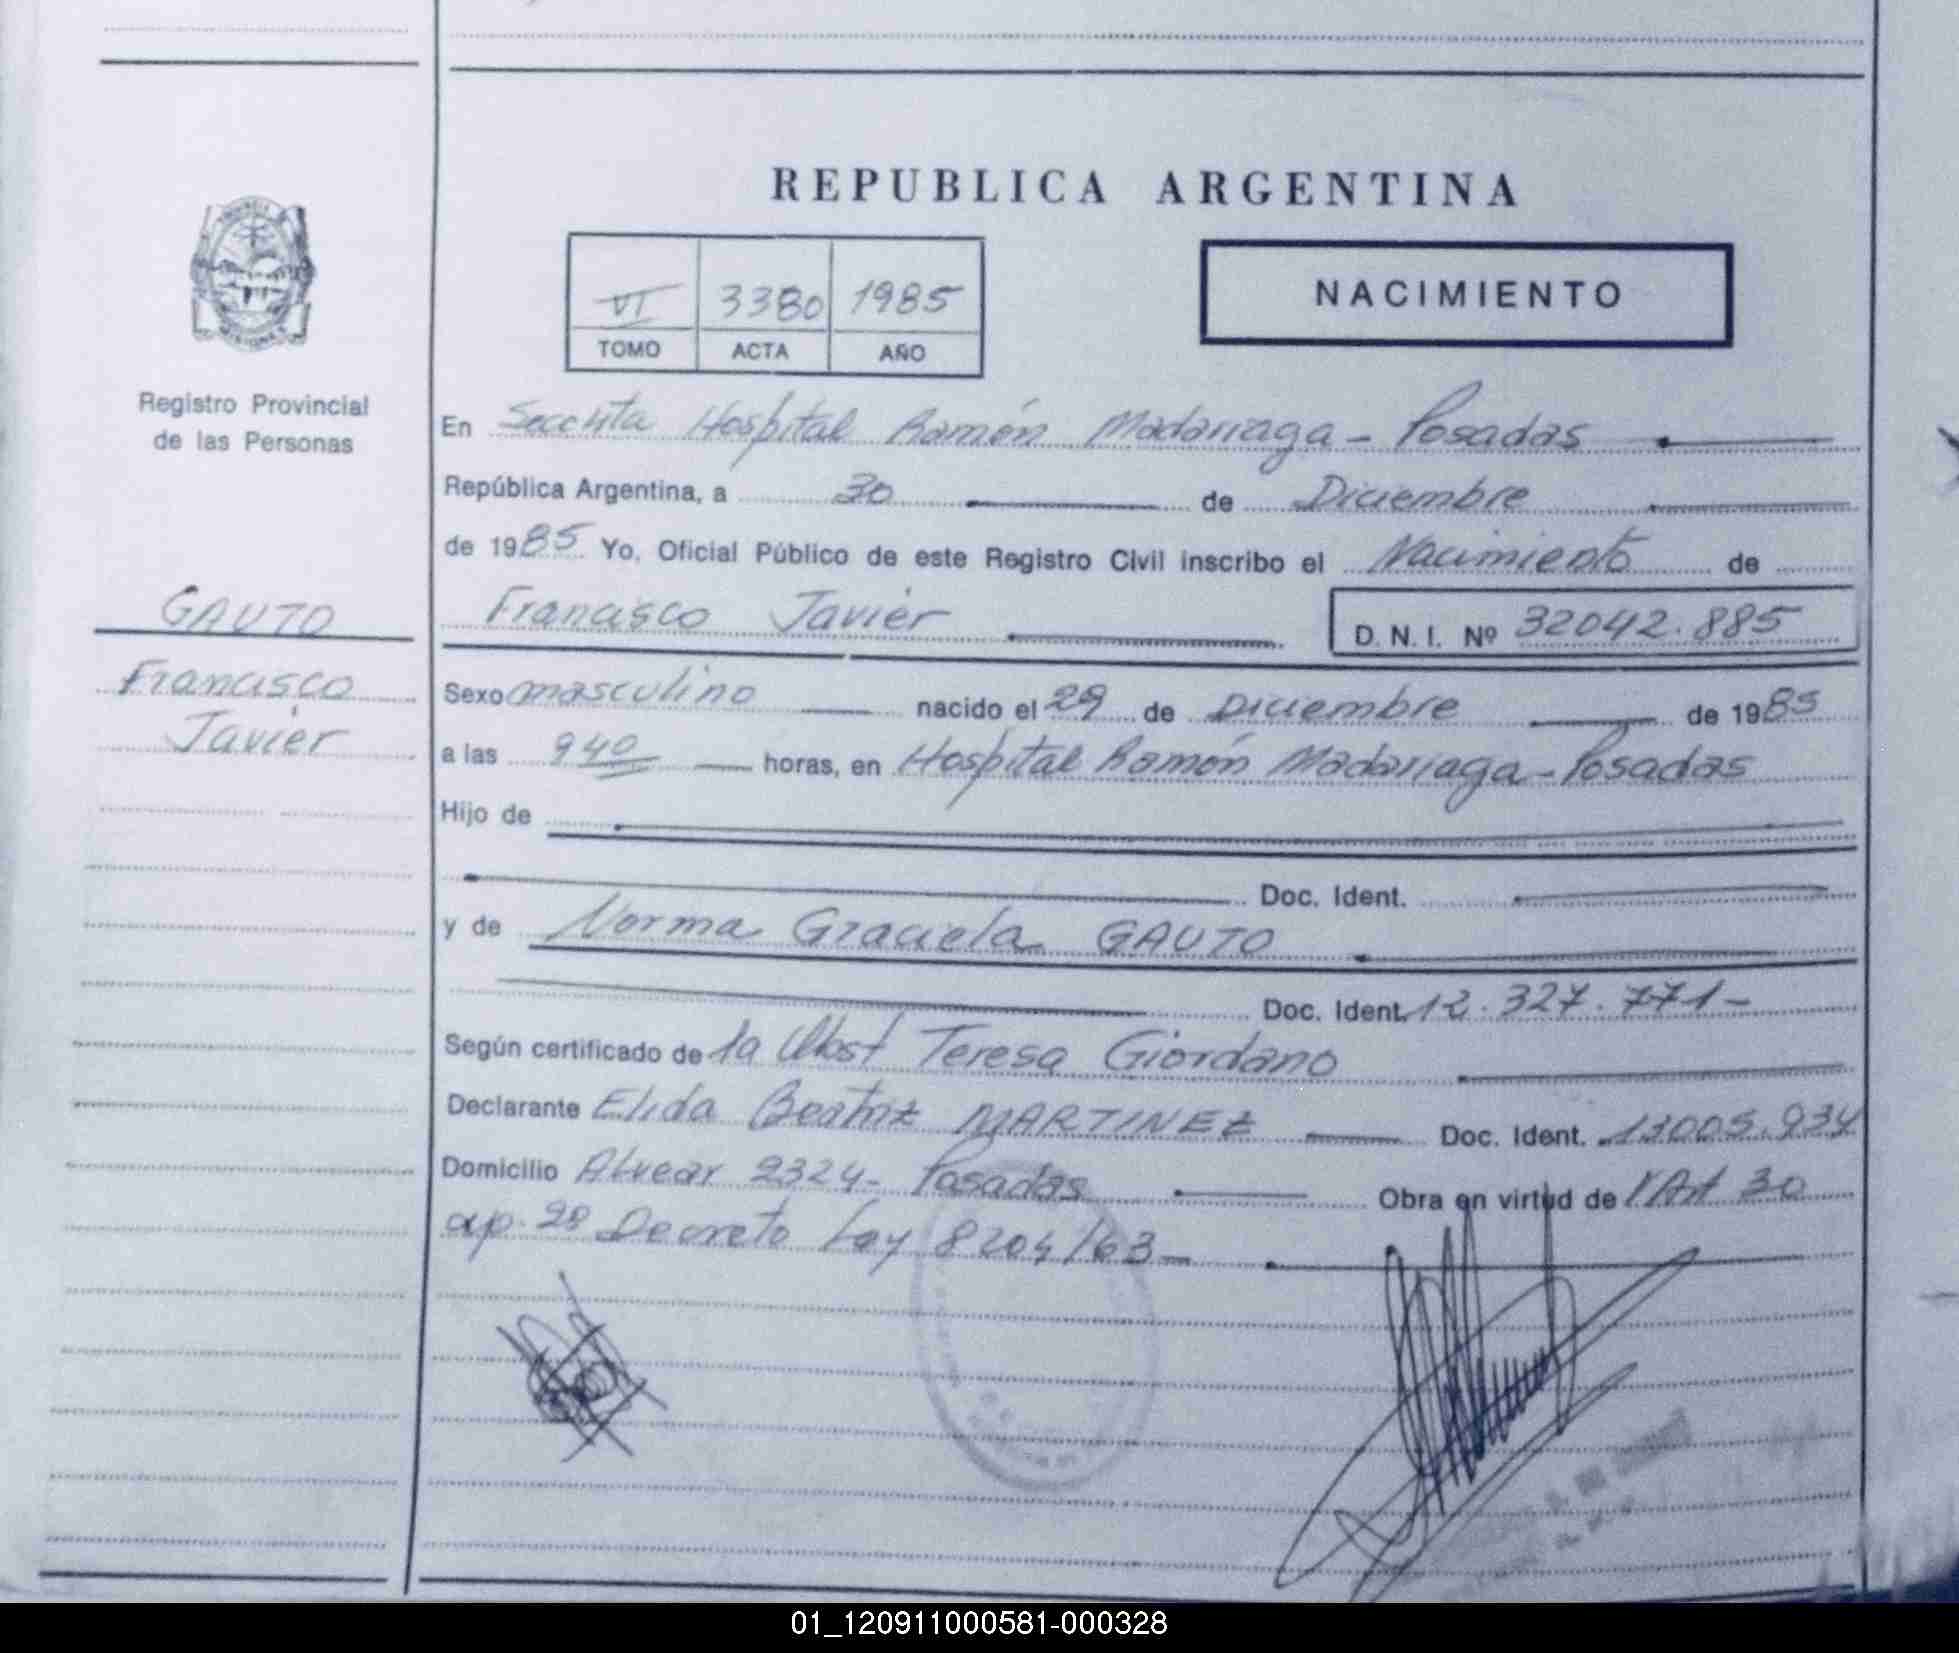 REPUBLICA ARGENTINA
VI 3380 1985
TOMO ACTA AÑO
NACIMIENTO
Registro Provincial
de las Personas
GAUTO
Francisco
Javier
En Secc Hospital Ramón Madariaga - Posadas
República Argentina, a 30 de Diciembre
de 1985 Yo, Oficial Público de este Registro Civil inscribo el Nacimiento de
Francisco Javier D. N. I. Nº 32042.885
Sexo masculino nacido el 29 de Diciembre de 1985
a las 940 horas, en Hospital Ramón Madariaga - Posadas
Hijo de
Doc. Ident.
y de Norma Graciela GAUTO
Doc. Ident. 12.327.771-
Según certificado de la Obst Teresa Giordano
Declarante Elida Beatriz MARTINEZ Doc. Ident. 13005.934
Domicilio Alvear 2324- Posadas Obra en virtud de l'Art 30
ap. 2º Decreto Ley 8204/63-
01_120911000581-000328